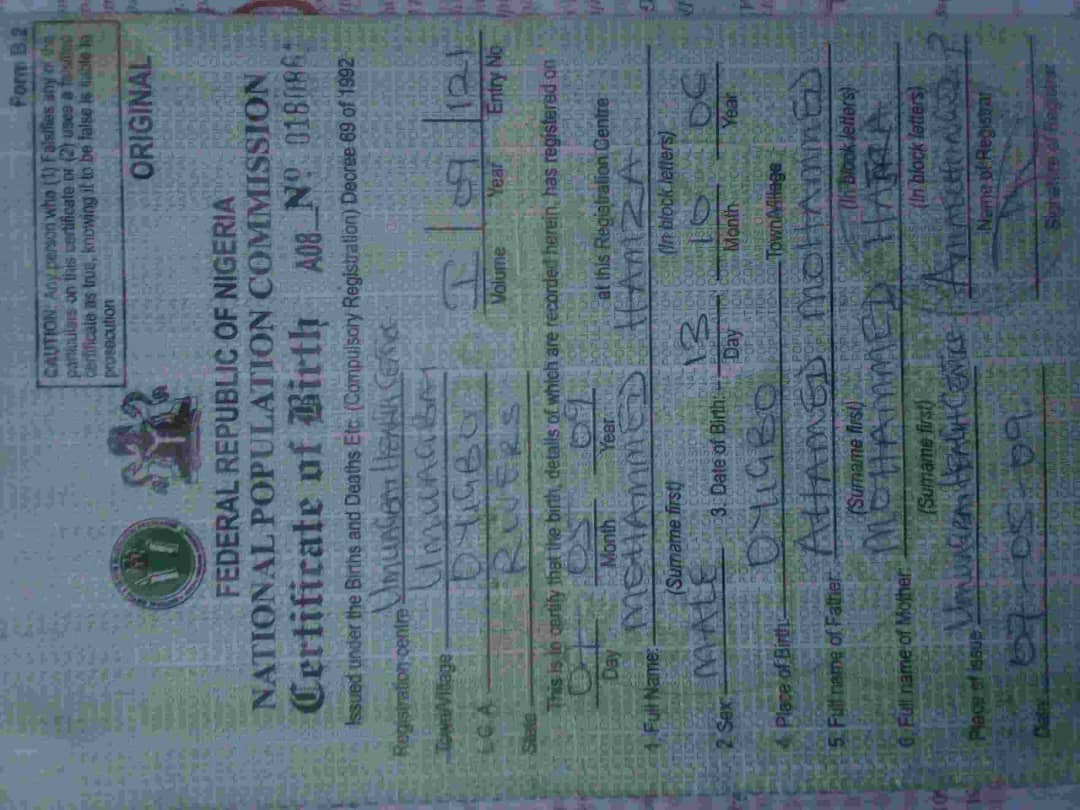 Form B.2
CAUTION: Any person who (1) Falsifies any of the
particulars on this certificate or (2) uses a falsified
certificate as true, knowing it to be false is liable to
prosecution
ORIGINAL
FEDERAL REPUBLIC OF NIGERIA
NATIONAL POPULATION COMMISSION
Certificate of Birth A08 Nº
Issued under the Births and Deaths Etc. (Compulsory Registration) Decree 69 of 1992
Registration centre
Town/Village
L.G.A. OYIGBO I 09 121
Volume Year Entry No.
State RIVERS
This is to certify that the birth, details of which are recorded herein, has registered on
07 05 09 at this Registration Centre
Day Month Year
1. Full Name: MOHAMMED HAMZA
(Surname first) (In block letters)
2. Sex: MALE 3. Date of Birth: 13 10 06
Day Month Year
4. Place of Birth: OYIGBO Town/Village
5. Full name of Father: MOHAMMED
(Surname first) (In block letters)
6. Full name of Mother:
(Surname first) (In block letters)
Place of Issue
Name of Registrar
Date 07-05-09
Signature of Registrar